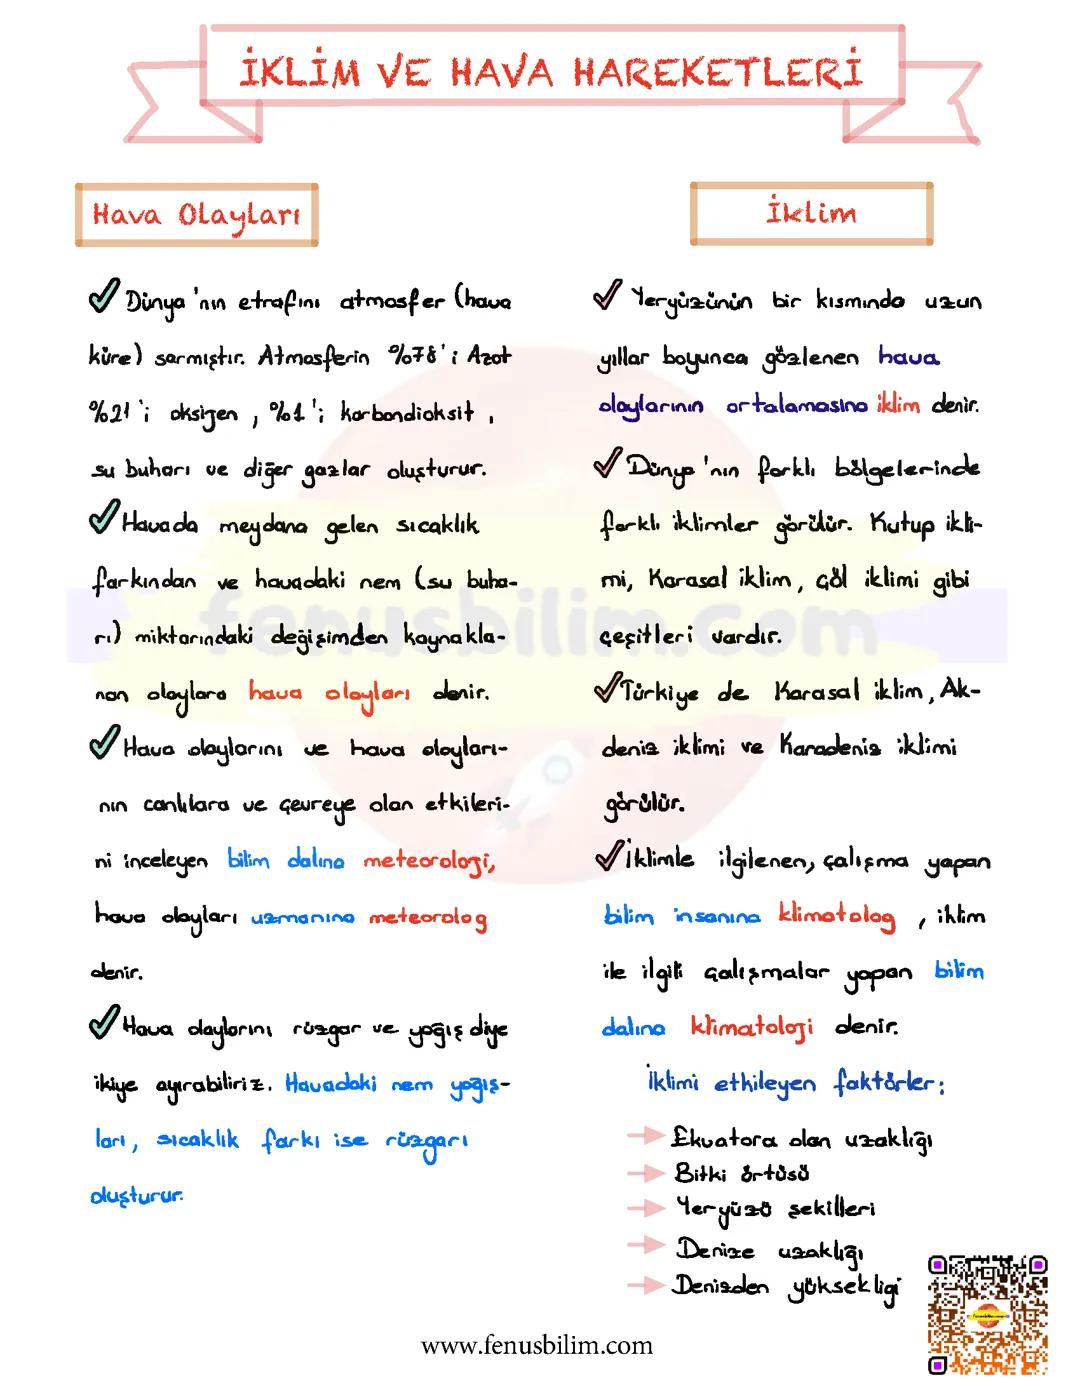 İKLİM VE HAVA HAREKETLERİ
Hava Olayları
Dünya'nın etrafını atmosfer (hava
küre) sarmıştır. Atmosferin %78'i Azot
%21'i oksijen, %1'i karbondioksit,
su buharı ve diğer gazlar oluşturur.
Havada meydana gelen sıcaklık
farkından ve havadaki nem (su buha-
rı) miktarındaki değişimden kaynakla-
nan olaylara hava olayları denir.
Hava olaylarını ve hava olayları-
nın canlılara ve çevreye olan etkileri-
ni inceleyen bilim dalına meteoroloji,
hava olayları uzmanına meteorolog
denir.
Hava olaylarını rüzgar ve yağış diye
ikiye ayırabiliriz. Havadaki nem yağış-
ları, sıcaklık farkı ise rüzgarı
oluşturur.
İklim
Yeryüzünün bir kısmında uzun
yıllar boyunca gözlenen hava
olaylarının ortalamasına iklim denir.
Dünya'nın farklı bölgelerinde
farklı iklimler görülür. Kutup ikli-
mi, Karasal iklim, Çöl iklimi gibi
çeşitleri vardır.
Türkiye de Karasal iklim, Ak-
deniz iklimi ve Karadeniz iklimi
görülür.
İklimle ilgilenen, çalışma yapan
bilim insanına klimatolog, iklim
ile ilgili çalışmalar yapan bilim
dalına klimatoloji denir.
İklimi etkileyen faktörler:
Ekvatora olan uzaklığı
Bitki örtüsü
Yeryüzü şekilleri
Denize uzaklığı
Denizden yüksekligi
fenusbilim.com
www.fenusbilim.com